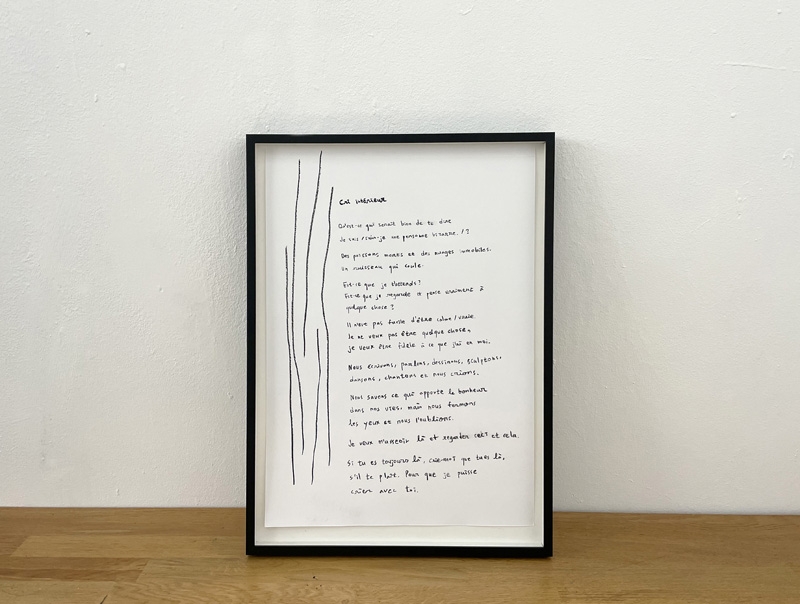 Cri intérieur
Qu'est-ce qui serait bien de te dire
Je suis / suis-je une personne bizarre. !?
Des poissons morts et des nuages immobiles.
Un ruisseau qui coule.
Est-ce que je t'attends?
Est-ce que je regarde et pense vraiment à
quelque chose?
Il n'est pas facile d'être calme / vraie.
Je ne veux pas être quelque chose,
je veux être fidèle à ce que j'ai en moi.
Nous écrivons, parlons, dessinons, sculptons,
dansons, chantons et nous crions.
Nous savons ce qui apporte le bonheur
dans nos vies, mais nous fermons
les yeux et nous l'oublions.
Je veux m'asseoir là et regarder ceci et cela.
Si tu es toujours là, crie-moi que tu es là,
s'il te plaît. Pour que je puisse
crier avec toi.